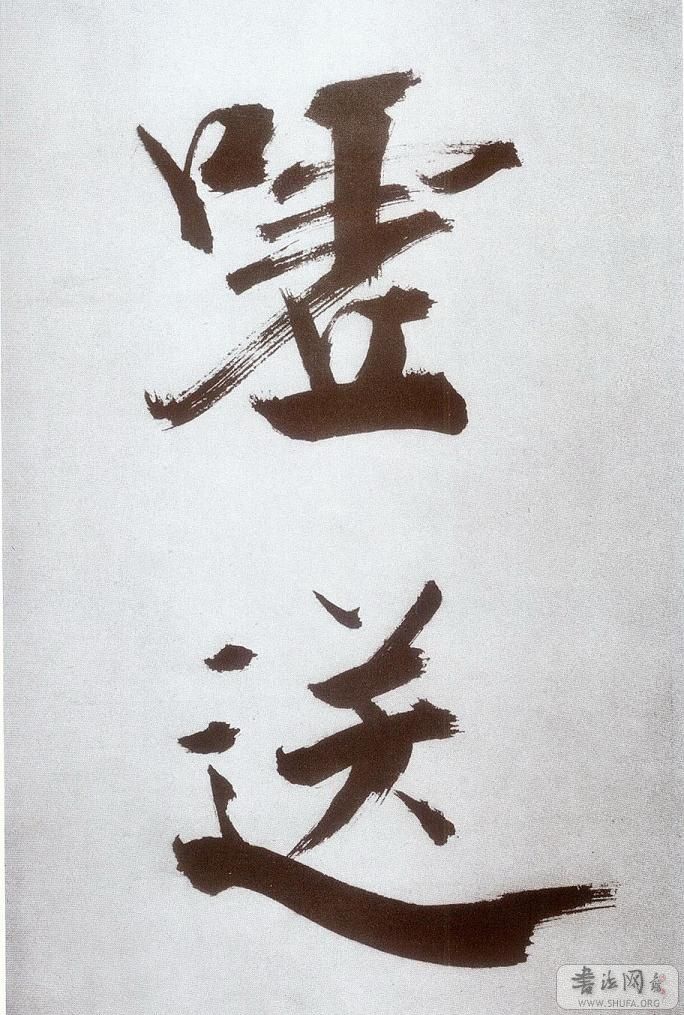 噓
送
書法网
WWW.SHUFA.ORG